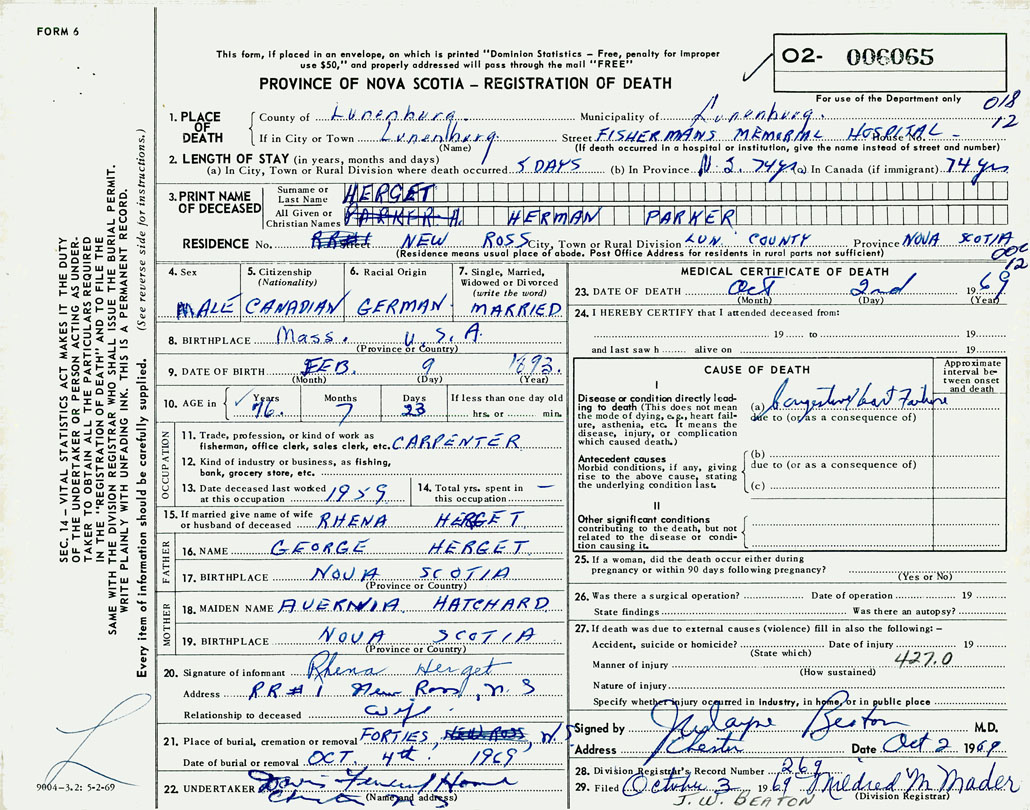 FORM 6
This form, if placed in an envelope, on which is printed "Dominion Statistics – Free, penalty for improper
use $50," and properly addressed will pass through the mail "FREE"
O2- 006065
PROVINCE OF NOVA SCOTIA – REGISTRATION OF DEATH
For use of the Department only
018
12
1. PLACE OF DEATH
County of Lunenburg. Municipality of Lunenburg.
If in City or Town Lunenburg. Street FISHERMANS MEMORIAL HOSPITAL – House No.
(Name) (If death occurred in a hospital or institution, give the name instead of street and number)
2. LENGTH OF STAY (in years, months and days)
(a) In City, Town or Rural Division where death occurred 5 DAYS (b) In Province N.S. 74 yrs (c) In Canada (if immigrant) 74 yrs
3. PRINT NAME OF DECEASED
Surname or Last Name HERGET
All Given or Christian Names PARKER A. HERMAN PARKER
RESIDENCE No. RR#1 NEW ROSS City, Town or Rural Division LUN. COUNTY Province NOVA SCOTIA
(Residence means usual place of abode. Post Office Address for residents in rural parts not sufficient)
006
12
4. Sex MALE
5. Citizenship (Nationality) CANADIAN
6. Racial Origin GERMAN
7. Single, Married, Widowed or Divorced (write the word) MARRIED
8. BIRTHPLACE Mass. U.S.A.
(Province or Country)
9. DATE OF BIRTH FEB. 9 1893.
(Month) (Day) (Year)
10. AGE in Years 76. Months 7 Days 23 If less than one day old
hrs. or min.
OCCUPATION
11. Trade, profession, or kind of work as
fisherman, office clerk, sales clerk, etc. CARPENTER
12. Kind of industry or business, as fishing,
bank, grocery store, etc.
13. Date deceased last worked at this occupation 1959
14. Total yrs. spent in this occupation –
15. If married give name of wife
or husband of deceased RHENA HERGET
FATHER
16. NAME GEORGE HERGET
17. BIRTHPLACE NOVA SCOTIA
(Province or Country)
MOTHER
18. MAIDEN NAME AVERNIA HATCHARD
19. BIRTHPLACE NOVA SCOTIA
(Province or Country)
20. Signature of informant Rhena Herget
Address RR#1 New Ross, N.S
Relationship to deceased Wife.
21. Place of burial, cremation or removal FORTIES, NEW ROSS, N.S
Date of burial or removal OCT. 4th. 1969
22. UNDERTAKER Davis Funeral Home
Chester
(Name and address)
MEDICAL CERTIFICATE OF DEATH
23. DATE OF DEATH Oct 2nd 1969
(Month) (Day) (Year)
24. I HEREBY CERTIFY that I attended deceased from:
19 to 19
and last saw h alive on 19
CAUSE OF DEATH
Approximate interval between onset and death
I
Disease or condition directly leading to death (This does not mean
the mode of dying, e.g., heart failure, asthenia, etc. It means the
disease, injury, or complication
which caused death.)
(a) Congestive heart Failure
due to (or as a consequence of)
Antecedent causes
Morbid conditions, if any, giving
rise to the above cause, stating
the underlying condition last.
(b)
due to (or as a consequence of)
(c)
II
Other significant conditions
contributing to the death, but not
related to the disease or condition causing it.
25. If a woman, did the death occur either during
pregnancy or within 90 days following pregnancy?
(Yes or No)
26. Was there a surgical operation? Date of operation 19
State findings Was there an autopsy?
27. If death was due to external causes (violence) fill in also the following: –
Accident, suicide or homicide? Date of injury 19
(State which)
427.0
Manner of injury
(How sustained)
Nature of injury
Specify whether injury occurred in Industry, in home, or in public place
Signed by J. Wayne Beaton M.D.
Address Chester Date Oct 2 1969
28. Division Registrar's Record Number 269
29. Filed October 3 1969 Mildred M Mader
(Division Registrar)
J. W. BEATON
SEC. 14 – VITAL STATISTICS ACT MAKES IT THE DUTY
OF THE UNDERTAKER OR PERSON ACTING AS UNDER-
TAKER TO OBTAIN ALL THE PARTICULARS REQUIRED
IN THE "REGISTRATION OF DEATH" AND TO FILE THE
SAME WITH THE DIVISION REGISTRAR WHO SHALL ISSUE THE BURIAL PERMIT.
WRITE PLAINLY WITH UNFADING INK. THIS IS A PERMANENT RECORD.
Every item of information should be carefully supplied. (See reverse side for instructions.)
9004-3.2: 5-2-69